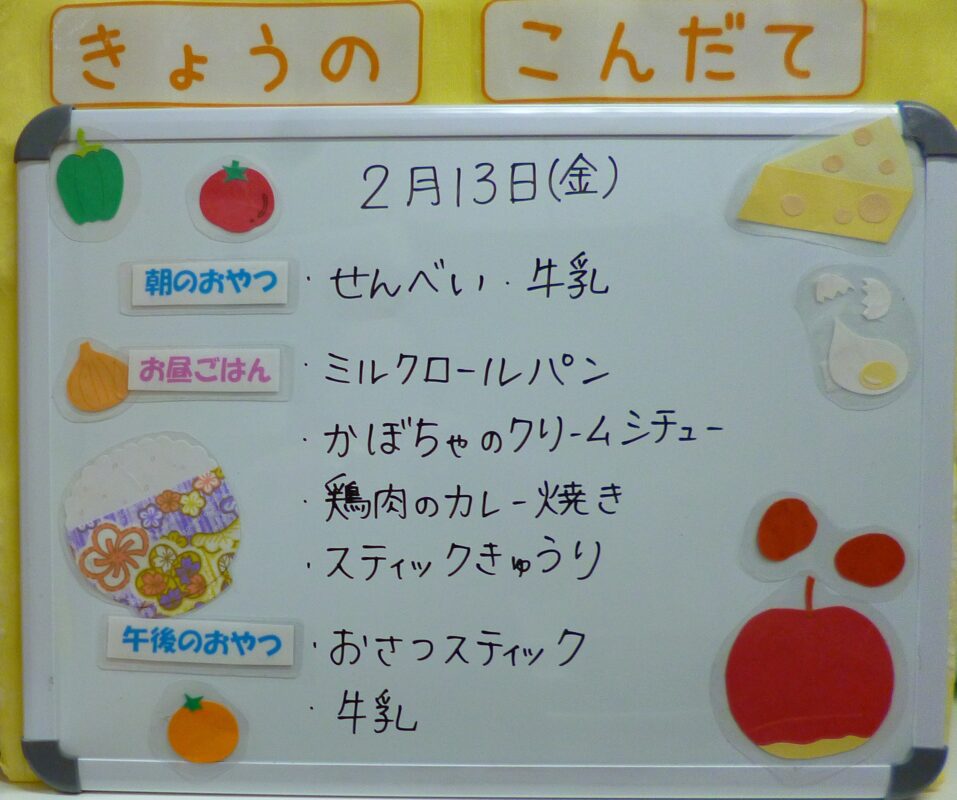 きょうの こんだて
2月13日(金)
朝のおやつ ・せんべい・牛乳
お昼ごはん ・ミルクロールパン
・かぼちゃのクリームシチュー
・鶏肉のカレー焼き
・スティックきゅうり
午後のおやつ ・おさつスティック
・牛乳